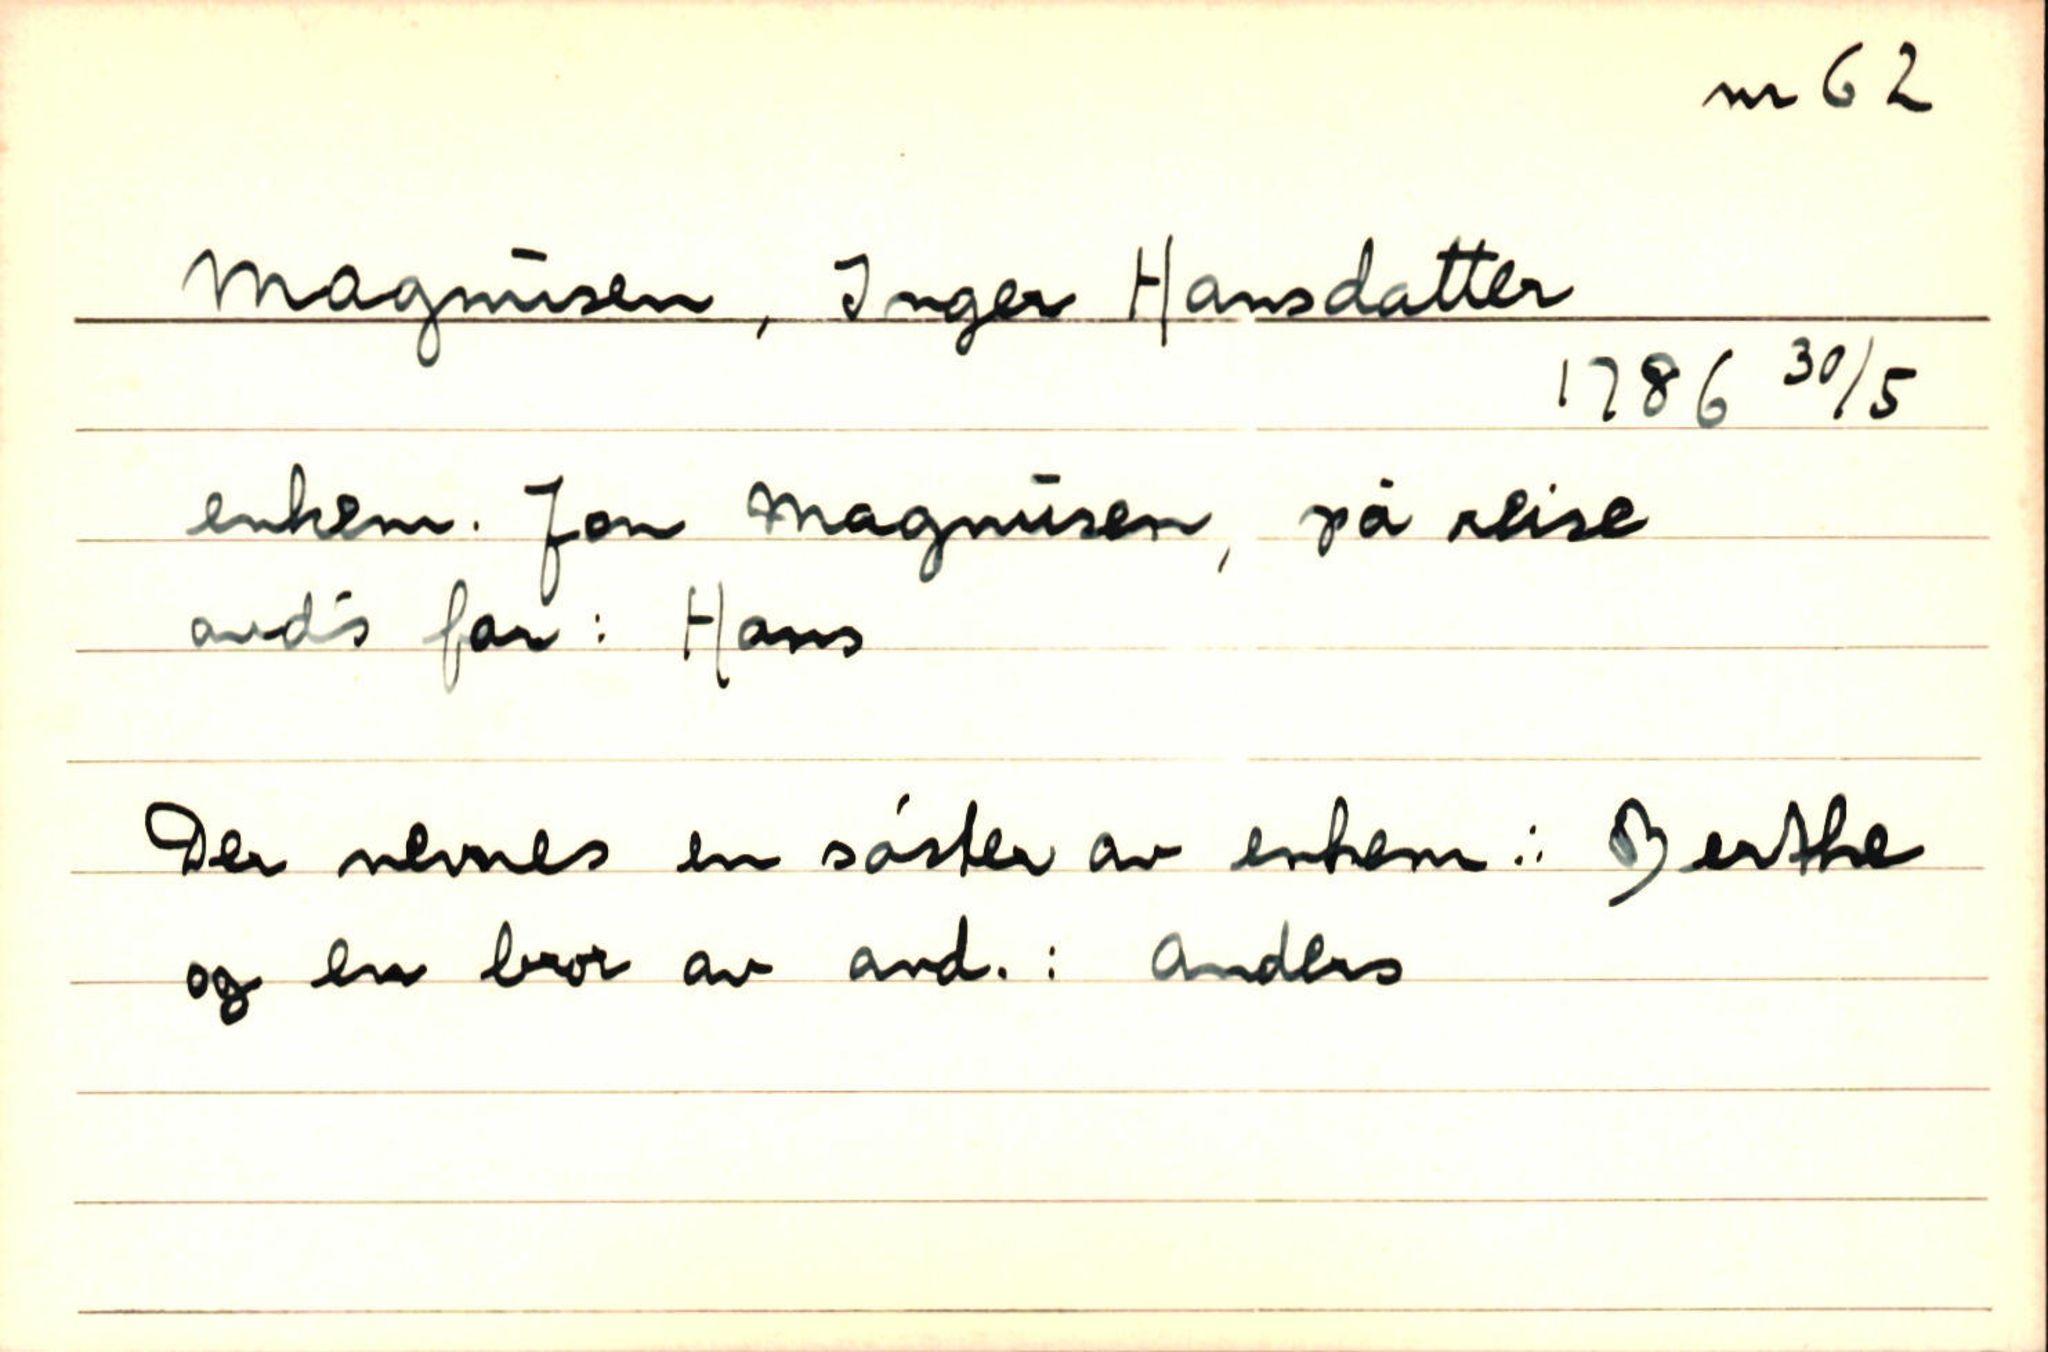 nr 62
Magnusen, Inger Hansdatter
1786 30/5
enkem. Jon Magnusen, på reise
avd's far: Hans
Der nevnes en søster av enkem.: Berthe
og en bror av avd.: Anders